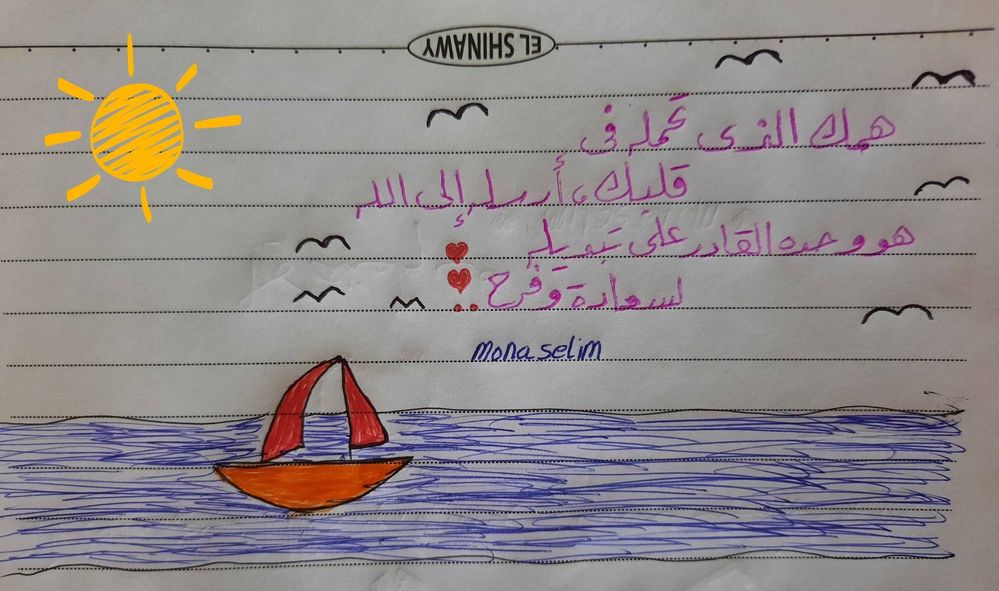 EL SHINAWY
همك الذى تحمله فى
قلبك، أرسله إلى الله
هو وحده القادر على تبديله
لسعادة وفرح
mona selim